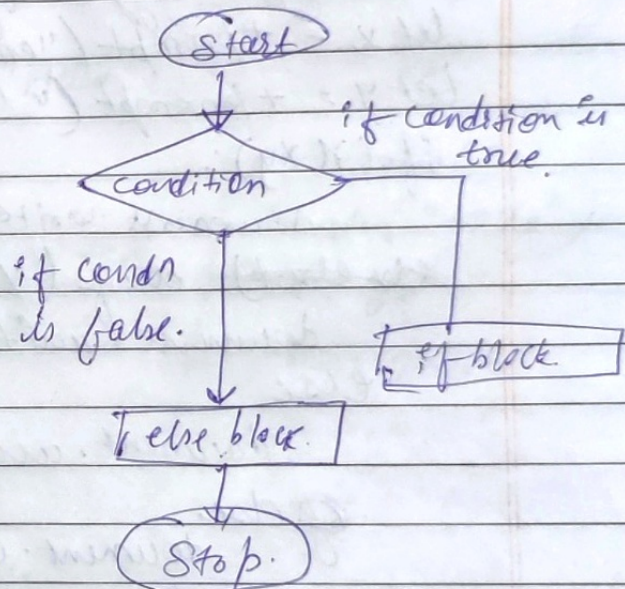 Start
if condition is
true.
condition
if condn
is false.
if block.
else block.
Stop.